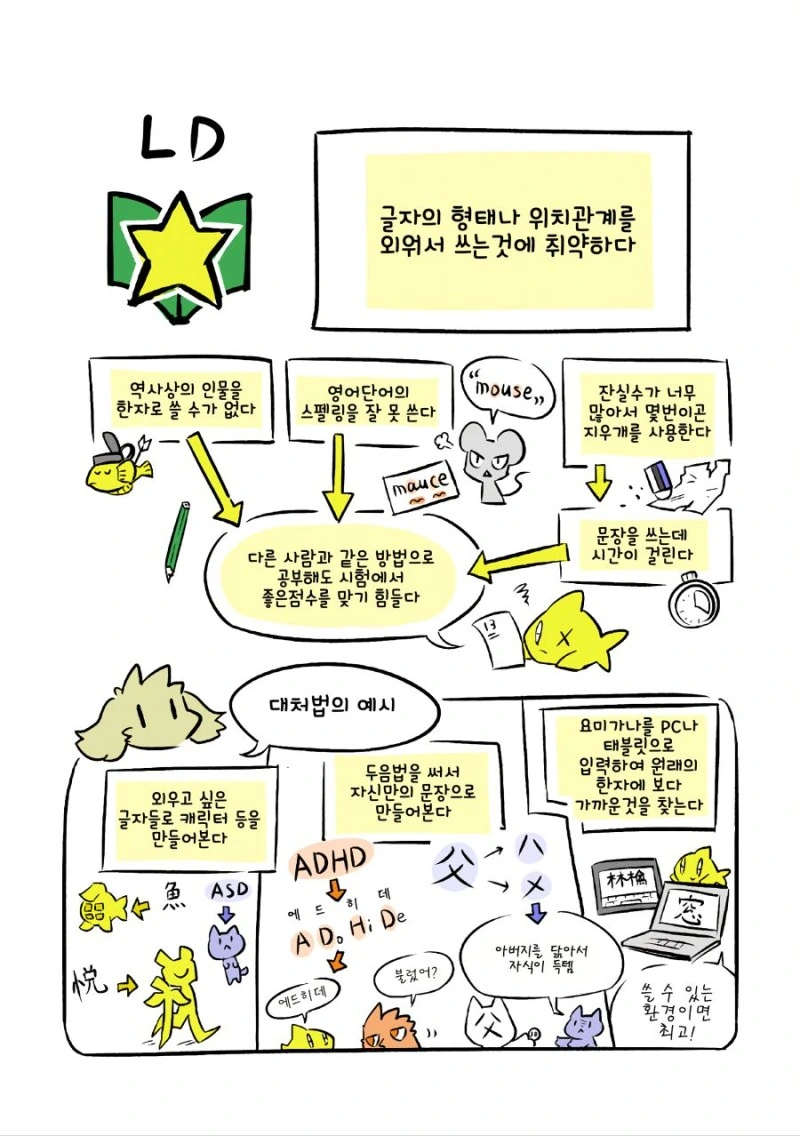 LD
글자의 형태나 위치관계를
외워서 쓰는것에 취약하다
역사상의 인물을
한자로 쓸 수가 없다
영어단어의
스펠링을 잘 못 쓴다
"mouse"
mauce
잔실수가 너무
많아서 몇번이곤
지우개를 사용한다
문장을 쓰는데
시간이 걸린다
다른 사람과 같은 방법으로
공부해도 시험에서
좋은점수를 맞기 힘들다
13
대처법의 예시
외우고 싶은
글자들로 캐릭터 등을
만들어본다
魚
ASD
悦
두음법을 써서
자신만의 문장으로
만들어본다
ADHD
에 드 히 데
A Do Hi De
에드히데
불렀어?
父
ハ
メ
아버지를 닮아서
자식이 득템
요미가나를 PC나
태블릿으로
입력하여 원래의
한자에 보다
가까운것을 찾는다
林檎
窓
쓸 수 있는
환경이면
최고!